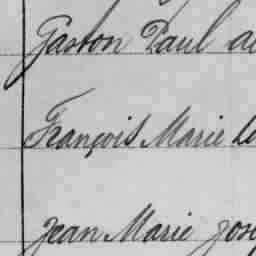 Gaston Paul
François Marie
Jean Marie